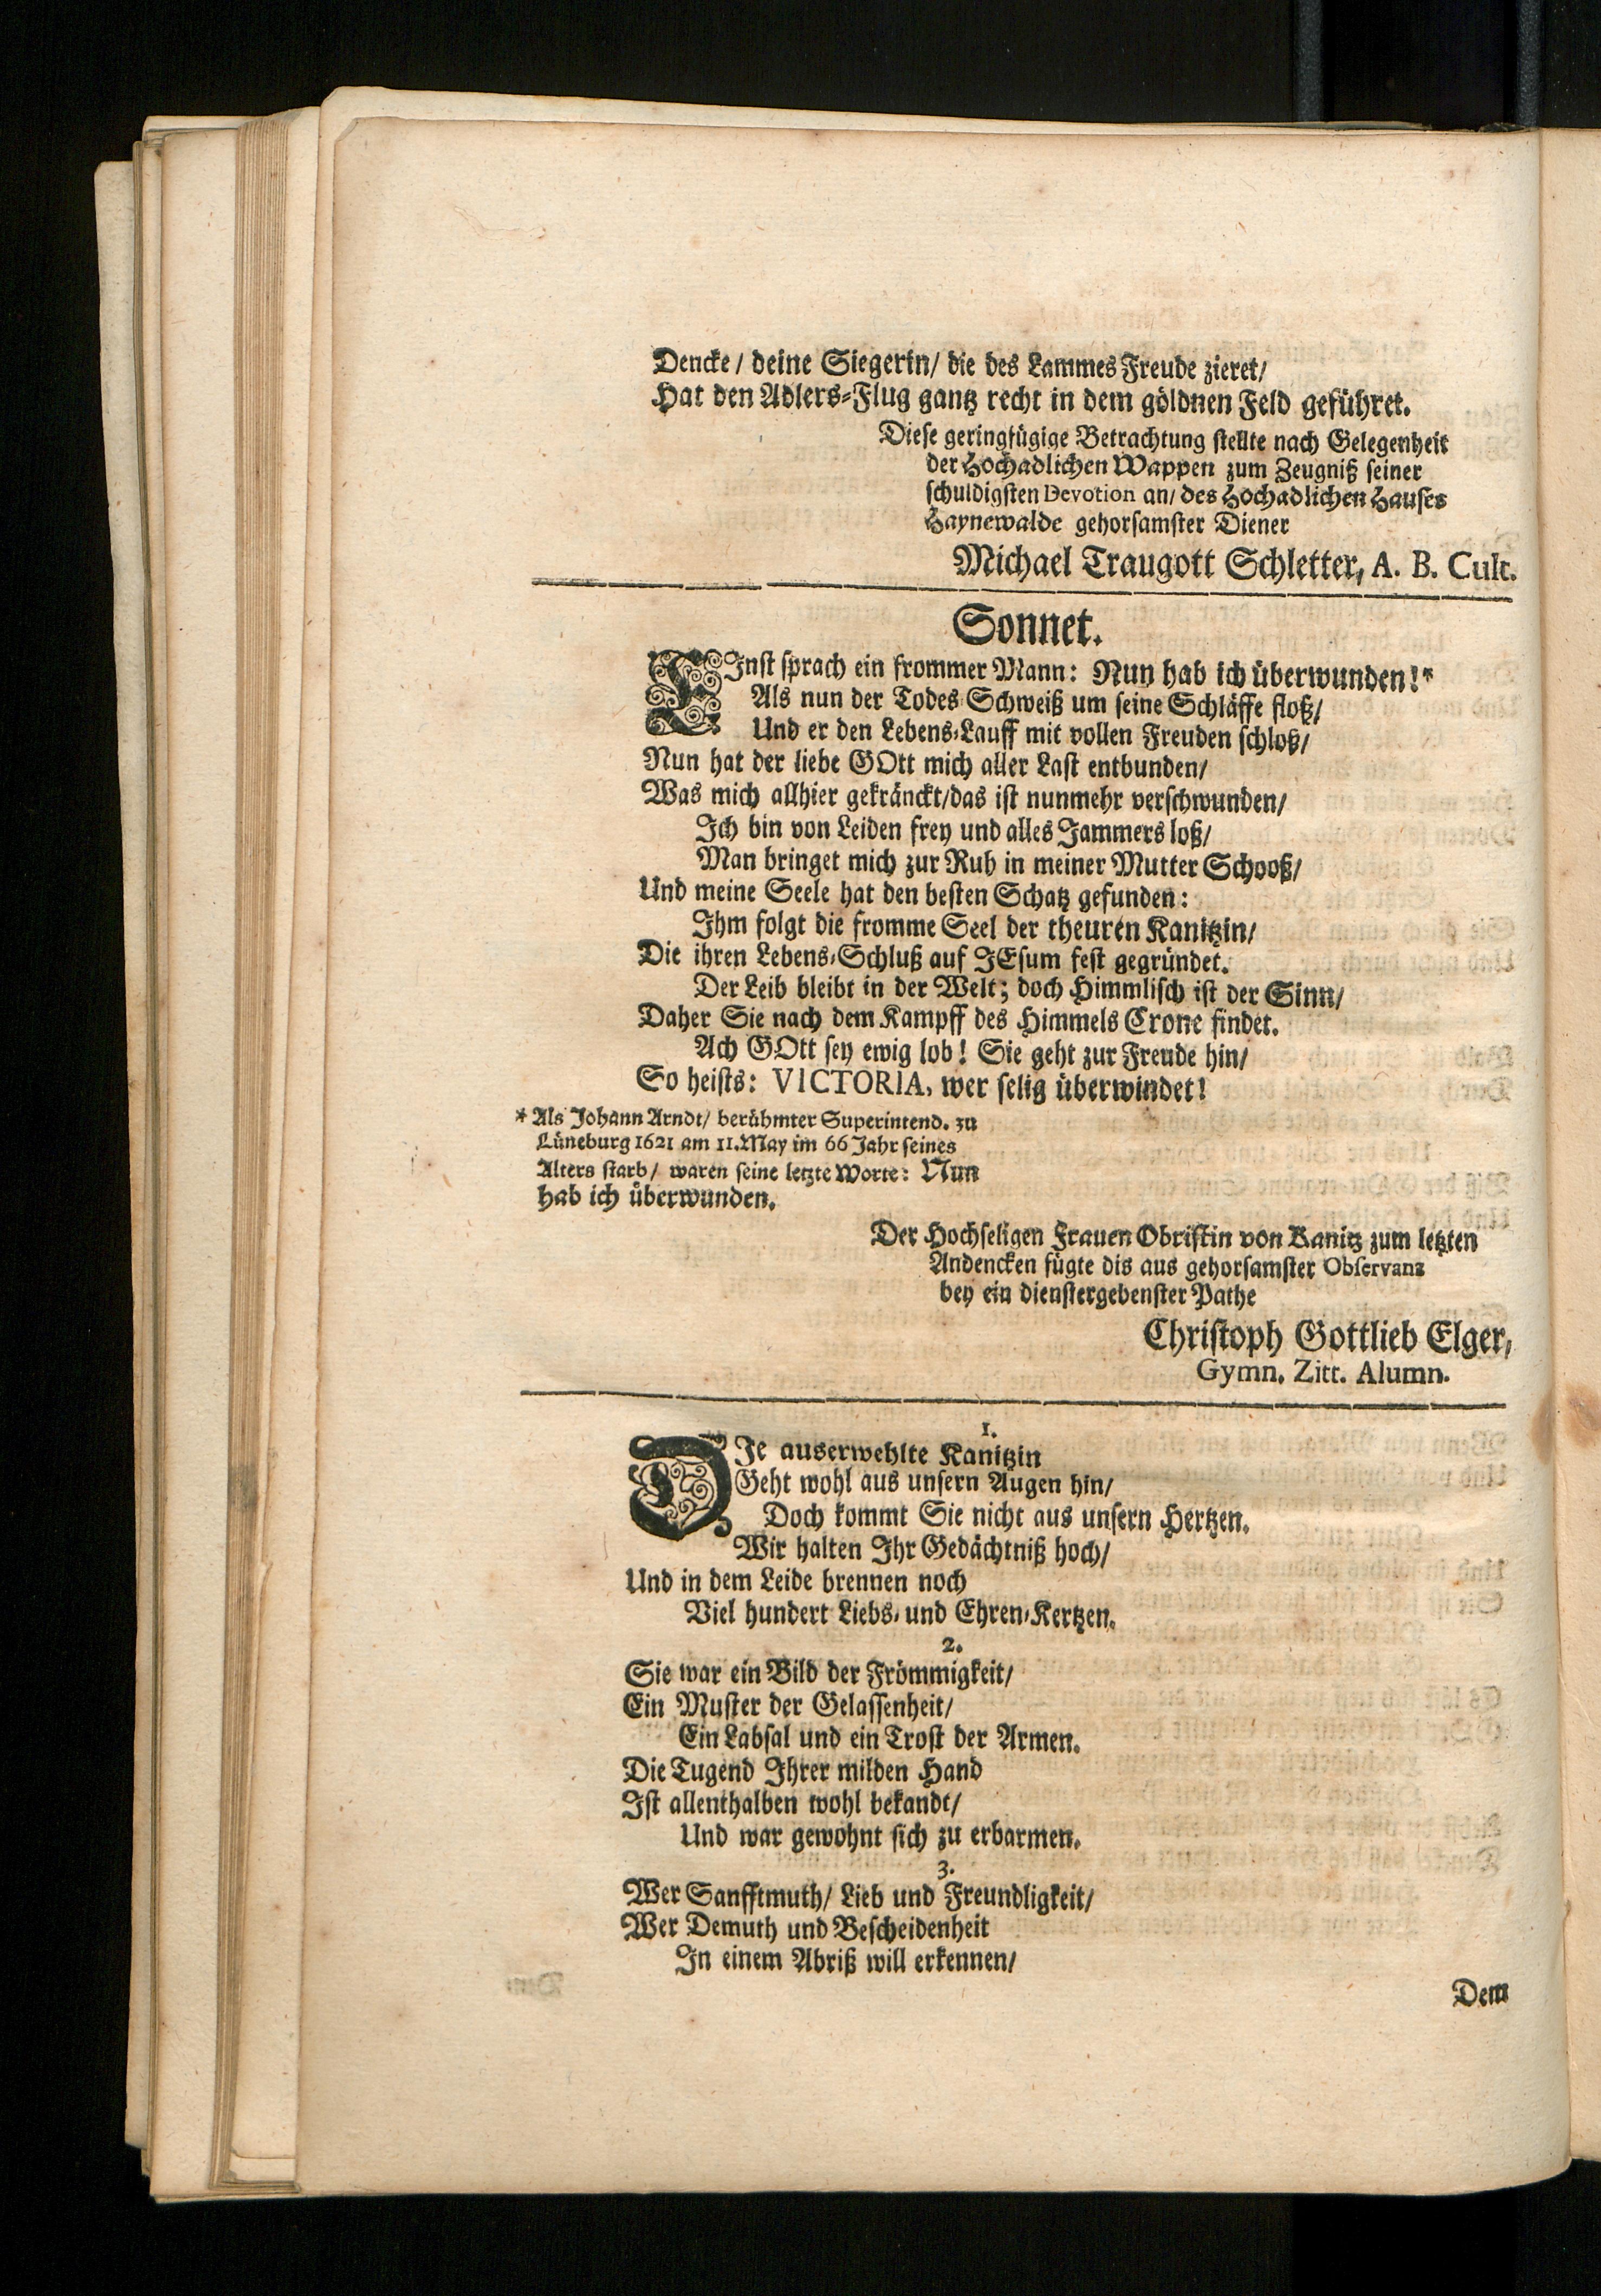 Dencke / deine Siegerin / die des Lammes Freude zieret /
Hat den Adlers-Flug gantz recht in dem göldnen Feld geführet.
Diese geringfügige Betrachtung stellte nach Gelegenheit
der Hochadlichen Wappen zum Zeugniß seiner
schuldigsten Devotion an / des Hochadlichen Hauses
Haynewalde gehorsamster Diener
Michael Traugott Schletter, A. B. Cult.
Sonnet.
EInst sprach ein frommer Mann: Nun hab ich überwunden!*
Als nun der Todes-Schweiß um seine Schläffe floß /
Und er den Lebens-Lauff mit vollen Freuden schloß /
Nun hat der liebe GOtt mich aller Last entbunden /
Was mich allhier gekränckt / das ist nunmehr verschwunden /
Ich bin von Leiden frey und alles Jammers loß /
Man bringet mich zur Ruh in meiner Mutter Schooß /
Und meine Seele hat den besten Schatz gefunden:
Ihm folgt die fromme Seel der theuren Kanitzin /
Die ihren Lebens-Schluß auf JEsum fest gegründet.
Der Leib bleibt in der Welt; doch Himmlisch ist der Sinn /
Daher Sie nach dem Kampff des Himmels Crone findet.
Ach GOtt sey ewig lob! Sie geht zur Freude hin /
So heists: VICTORIA, wer selig überwindet!
* Als Johann Arndt / berühmter Superintend. zu
Lüneburg 1621 am 11. May im 66 Jahr seines
Alters starb / waren seine letzte Worte: Nun
hab ich überwunden.
Der Hochseligen Frauen Obristin von Kanitz zum letzten
Andencken fügte dis aus gehorsamster Observanz
bey ein dienstergebenster Pathe
Christoph Gottlieb Elger,
Gymn. Zitt. Alumn.
1.
DJe auserwehlte Kanitzin
Geht wohl aus unsern Augen hin /
Doch kommt Sie nicht aus unsern Hertzen.
Wir halten Ihr Gedächtniß hoch /
Und in dem Leide brennen noch
Viel hundert Liebs- und Ehren-Kertzen.
2.
Sie war ein Bild der Frömmigkeit /
Ein Muster der Gelassenheit /
Ein Labsal und ein Trost der Armen.
Die Tugend Ihrer milden Hand
Ist allenthalben wohl bekandt /
Und war gewohnt sich zu erbarmen.
3.
Wer Sanfftmuth / Lieb und Freundligkeit /
Wer Demuth und Bescheidenheit
In einem Abriß will erkennen /
Dem